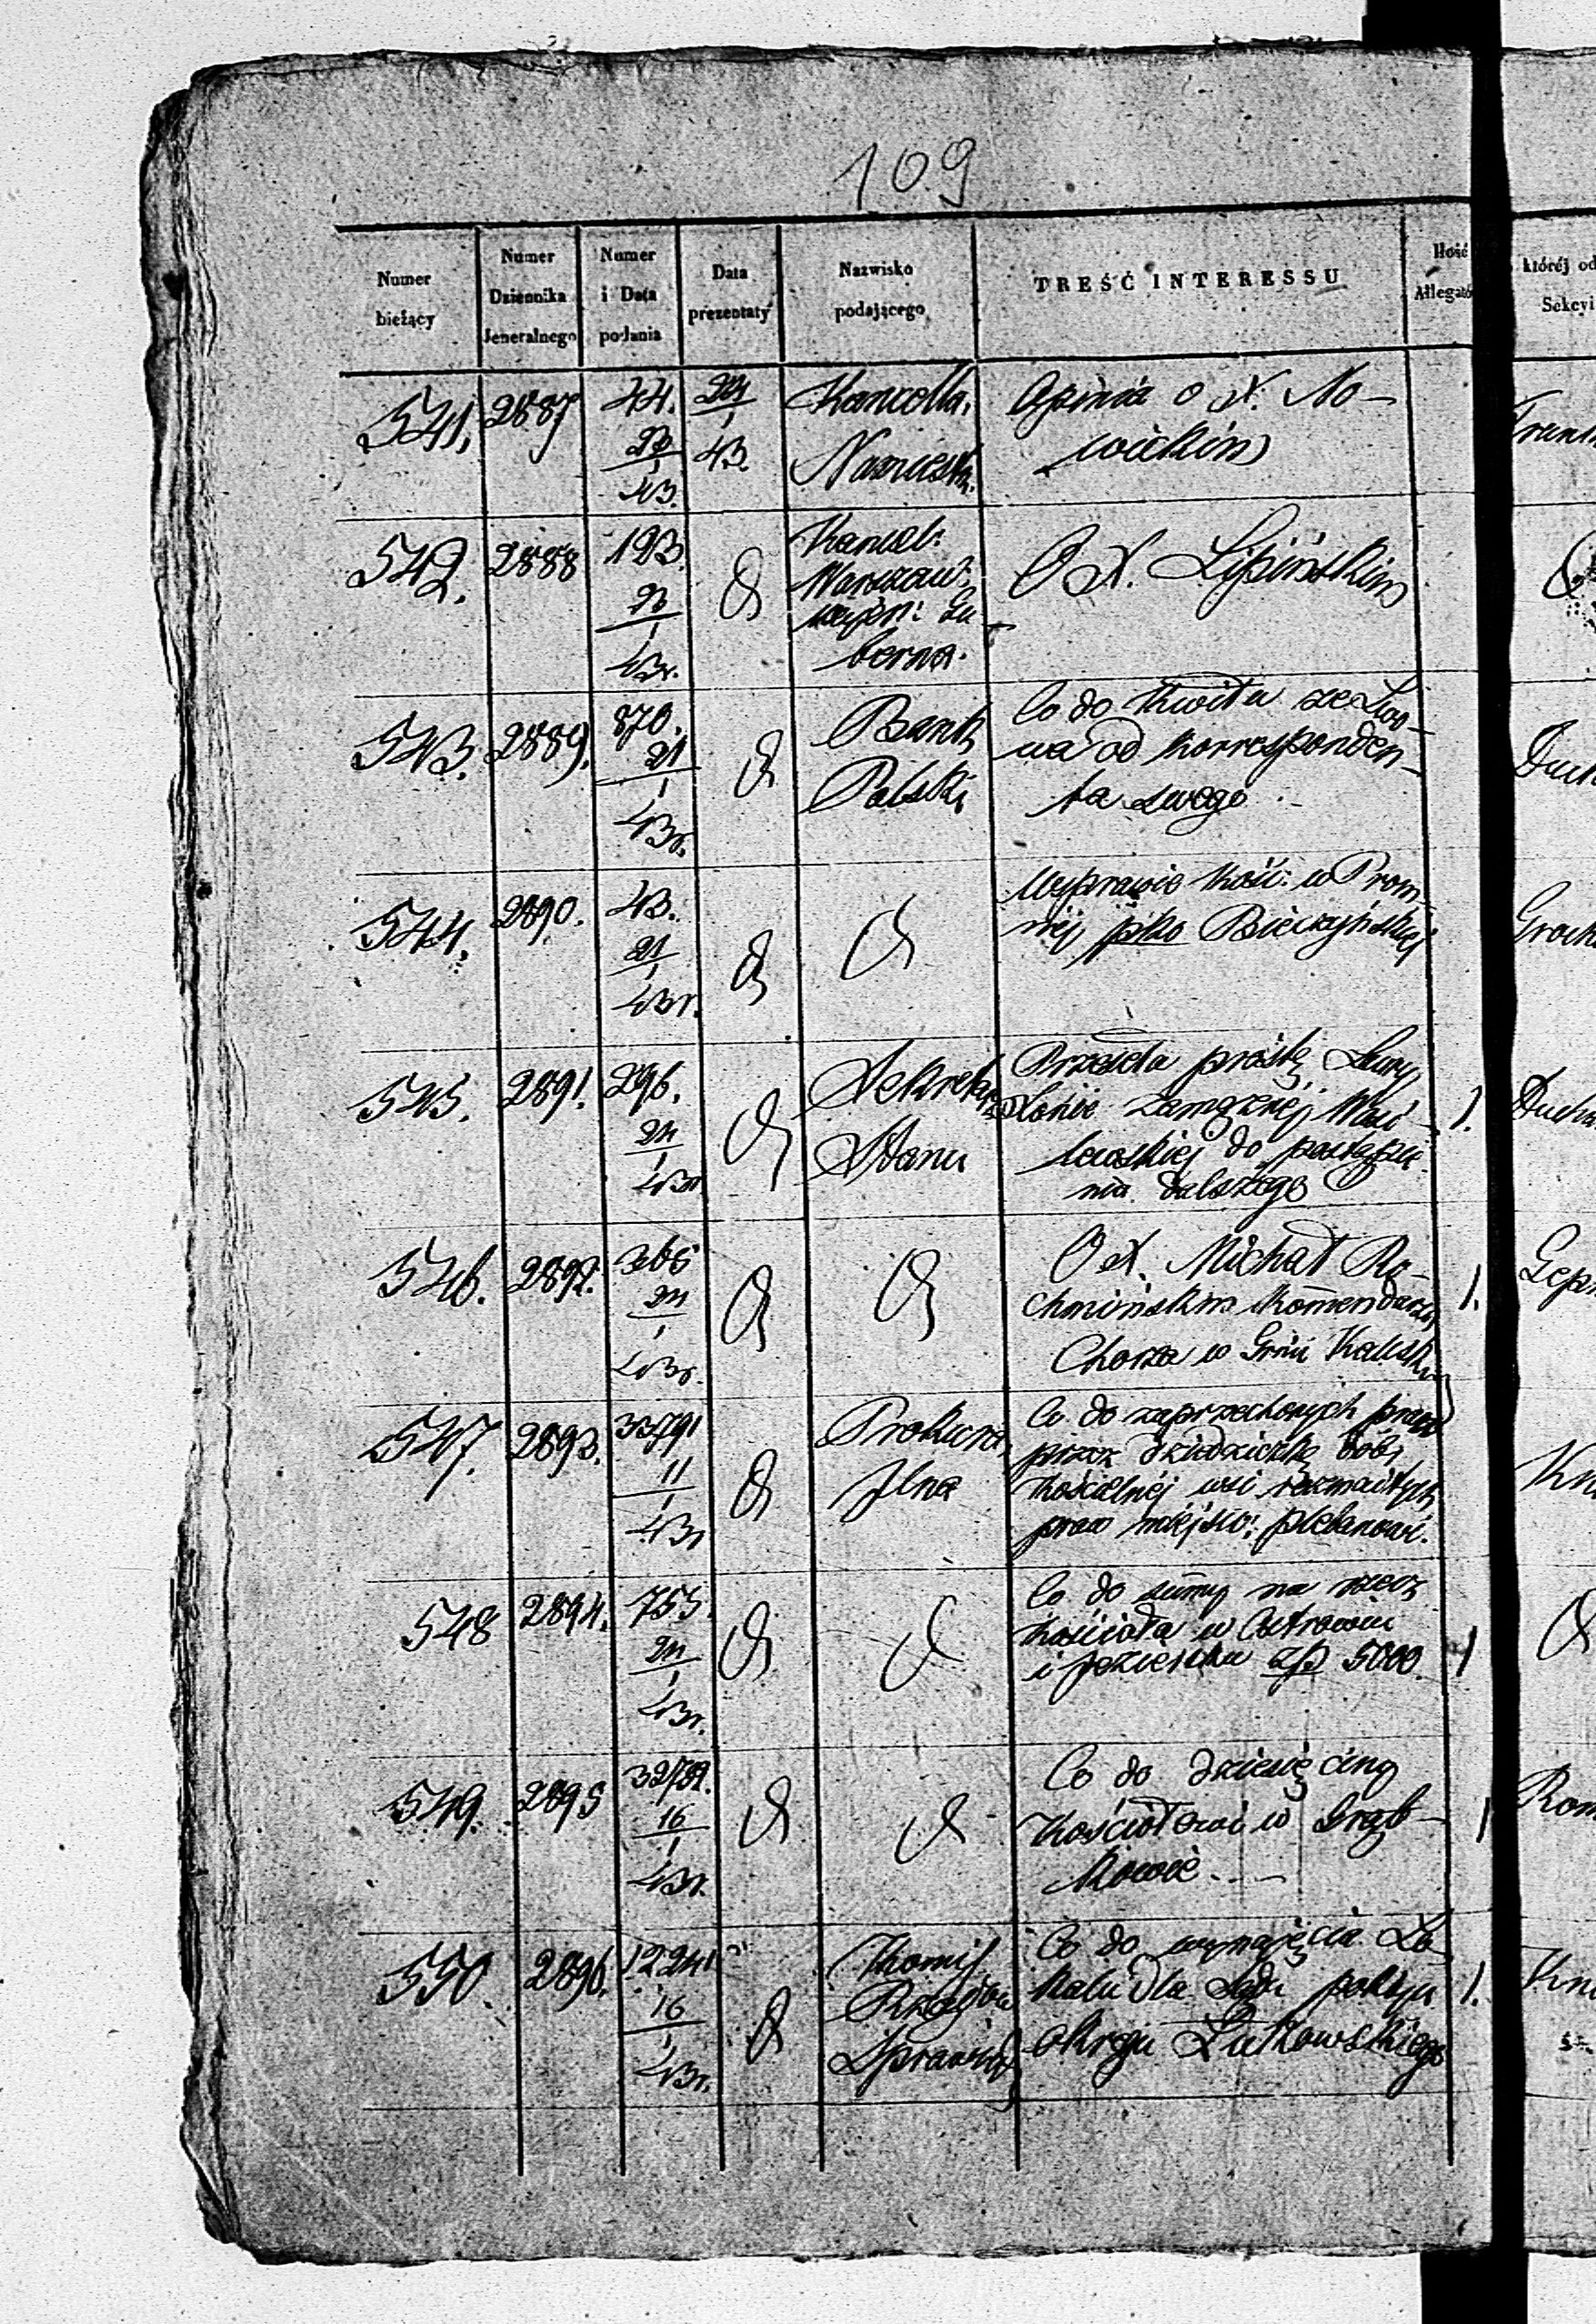 109
Numer bieżący
Numer Dziennika Jeneralnego
Numer i Data podania
Data prezentaty
Nazwisko podającego
TREŚĆ INTERESSU
Ilość Allegató
któréj od Sekcyi
541. 2887 44. 23/1 43. 24/1 43. Kancella.
Namiestn.
Opinia o X. No-
wickim
542. 2888 193. 23/1 43r. Kancel:
Warszaws:
wojen: Gu-
berna.
O X. Lipińskim
543. 2889. 870. 21/1 43r. Bank
Polski
Co do Kwitu ze Lwo-
wa od korresponden-
ta swego
544. 2890. 43. 21/1 43r.
Wyprawie kość: w Prom-
nej jako Bieczyńskiej
545. 2891. 296. 24/1 43r. Sekretarz
Stanu
Przesela prośbę
zamężnéj Wasi-
lewskiej do postąpie-
nia dalszego
1.
546. 2892. 365 24/1 43r.
O X. Michał Ro-
chmińskim Komendarzu
Chorza w Grnii Kalisk
1.
547. 2893. 33791 11/1 43r. Prokura.
Jlna
Co do zaprzeczonych praw
przez dziedziczkę dóbr
Kościelnéj wsi rozmaitych
praw miejsco: plebanowi.
548 2894. 755. 24/1 43r.
Co do summy na rzecz
Kościoła w Ostrowiu
i Jeziorku zp 5000.
1
549. 2895 32789. 16/1 43r.
Co do dziesięciny
Kościołowi w Grąb-
kowie
1
550. 2896. 12241 16/1 43r. Komis
Rządow
Sprawied
Co do wynajęcia Lo-
kalu dla Sądu pokoju
okręgu Łukowskiego
1.